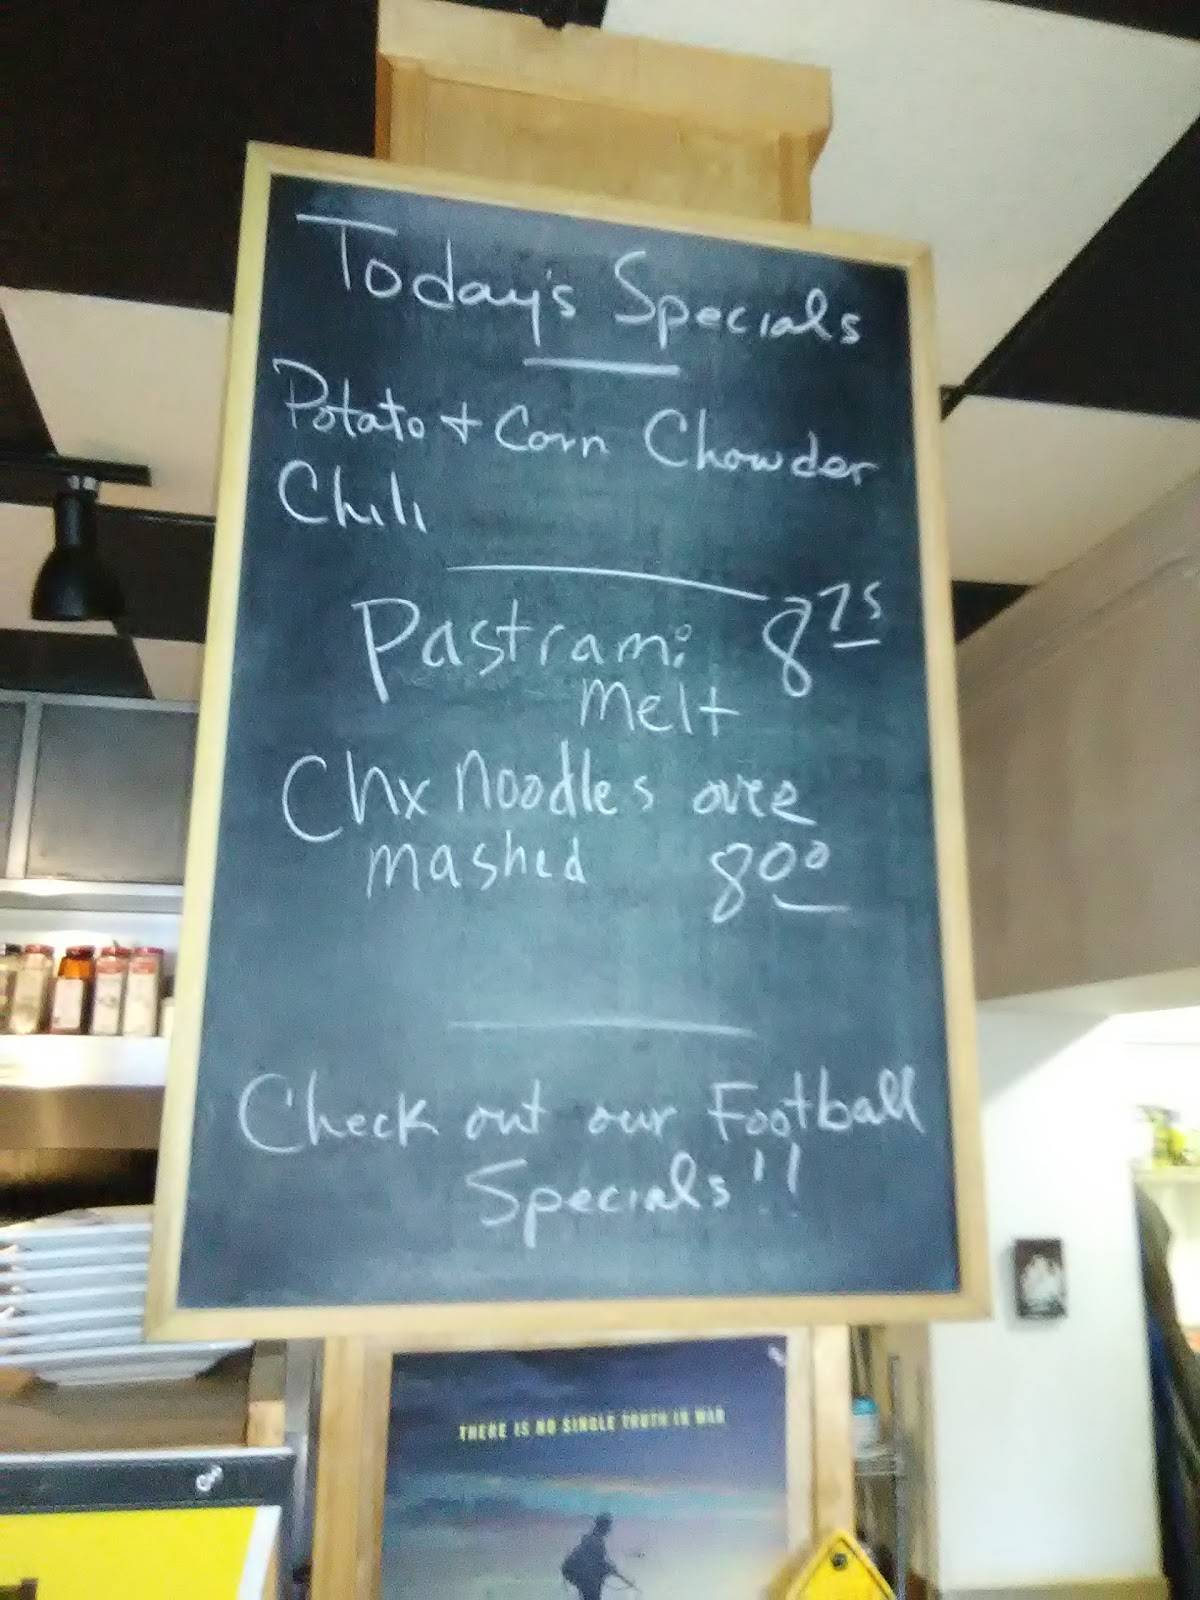 Today's Specials
Potato + Corn Chowder
Chili
Pastrami 8 75
Melt
Chx Noodles over
mashed 8 00
Check out our Football
Specials!!
THERE IS NO SINGLE TRUTH IN WAR